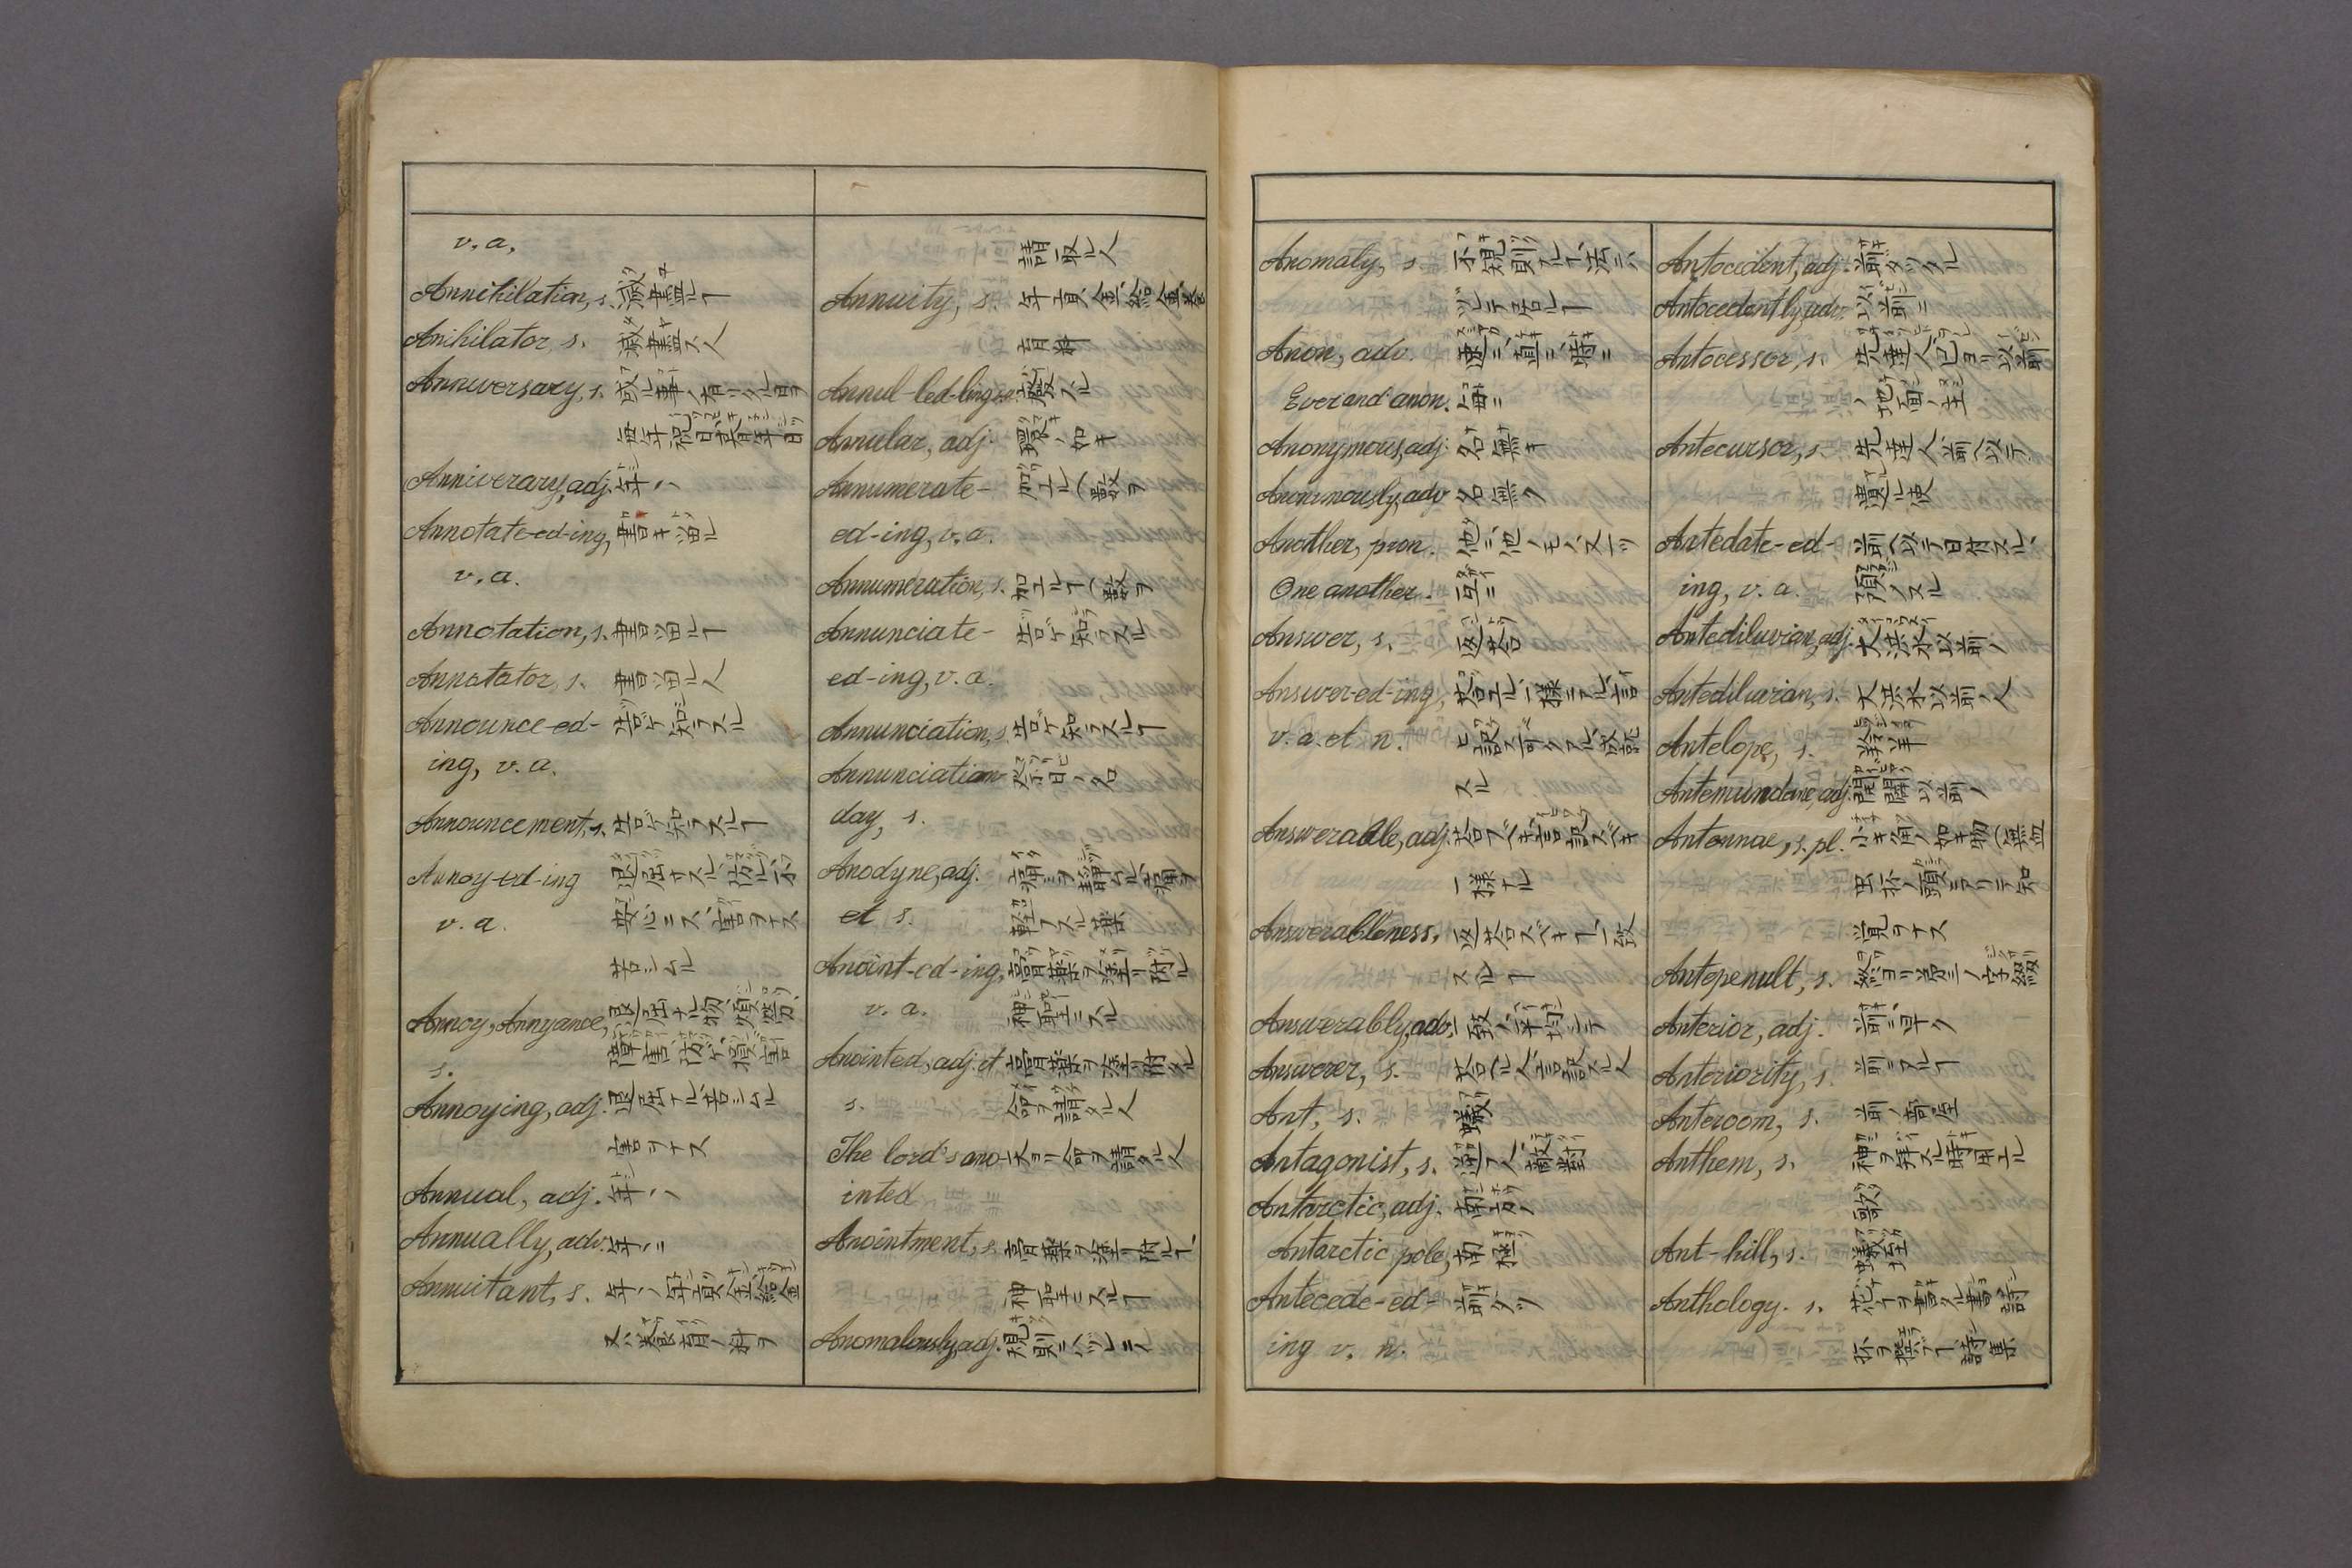 v. a.
Annihilation, s. 滅盡ルヿ
Anihilator, s. 滅盡ス人
Anniversary, s. 或ル事ノ有リタル日ヲ
毎年祝日
Anniverary, adj. 年〻ノ
Annotate-ed-ing, 書キ留ル
v. a.
Annotation, s. 書留ルヿ
Annotator, s. 書留ル人
Announce-ed- 告ゲ知ラスル
ing, v. a.
Announcement, s. 告ゲ知ラスルヿ
Annoy-ed-ing 退屈サスル、妨ル、不
v. a. 安心ニス、害ヲナス
苦シムル
Annoy, Annyance, 退屈ナル物、煩勞、
s. 障害、妨ゲ、損害
Annoying, adj. 退屈ナル、苦シムル
害ヲナス
Annual, adj. 年〻ノ
Annually, adv. 年〻ニ
Annuitant, s. 年〻ノ年貢金給金
又ハ養育ノ料ヲ
請取ル人
Annuity, s. 年貢金、給金、養
育料
Annul-led-ling, 廢スル
Annular, adj. 環ノ如キ
Annumerate- 加エル(數ヲ
ed-ing, v. a.
Annumeration, s. 加エルヿ(數ヲ
Annunciate- 告ゲ知ラスル
ed-ing, v. a.
Annunciation, s. 告ゲ知ラスルヿ
Annunciation 祭日ノ名
day, s.
Anodyne, adj. 痛ヲ靜ムル、痛ヲ
et s. 輕フスル藥
Anoint-ed-ing, 膏藥ヲ塗リ附ル
v. a. 神聖ニスル
Anointed, adj. et 膏藥ヲ塗リ附タル
s. 命ヲ請タル人
The lord's ano- 天ヨリ命ヲ請タル人
inted
Anointment, s. 膏藥ヲ塗リ附ルヿ、
神聖ニスルヿ
Anomalously, adj. 規則ニハヅレテ
Anomaly, s. 不規則ナルヿ、法ニハ
ヅレテ居ルヿ
Anon, adv. 速ニ、直ニ、時ニ
Ever and anon. 毎ニ
Anonymous, adj. 名無キ
Anonimously, adv 名無ク
Another, pron. 他ニ、他ノモノ、又一ツ
One another. 互ニ
Answer, s. 返荅
Answer-ed-ing, 荅エル、一樣ニアル、言
v. a. et n. ヒ訳
スル
Answerable, adj. 荅フベキ、言訳スベキ
一樣ナル
Answerableness, 返荅スベキヿ、一致
スルヿ
Answerably, adv. 一致ノ、平均シテ
Answerer, s. 荅フル人、言訳スル人
Ant, s. 蟻
Antagonist, s. 逆フ人、敵對
Antarctic, adj. 南方ノ
Antarctic pole, 南極
Antecede-ed- 前ダツ
ing v. n.
Antocedent, adj. 前ダツタル
Antocedently, adv. 以前ニ
Antocessor, s. 先達人、己ヨリ以前
ノ地面ノ主
Antecursor, s. 先達人、前ヘ以テ
遣ル使
Antedate-ed- 前ヘ以テ日付スル、
ing, v. a. 預メスル
Antediluvian, adj. 大洪水以前ノ
Antediluvian, s. 大洪水以前ノ人
Antelope, s. 羚羊
Antemundane, adj. 開闢以前ノ
Antennae, s. pl. 小キ角ノ如キ物(無血
虫抔ノ頭ニアリテ知
覚ヲナス
Antepenult, s. 終ヨリ第三ノ字綴
Anterior, adj. 前ニ、早ク
Anteriority, s. 前ニアルヿ
Anteroom, s. 前ノ部屋
Anthem, s. 神ヲ拜スル時用エル
歌
Ant-hill, s. 蟻垤
Anthology. s. 花ノヿヲ書タル書、詩
抔ヲ撰ブヿ、詩集